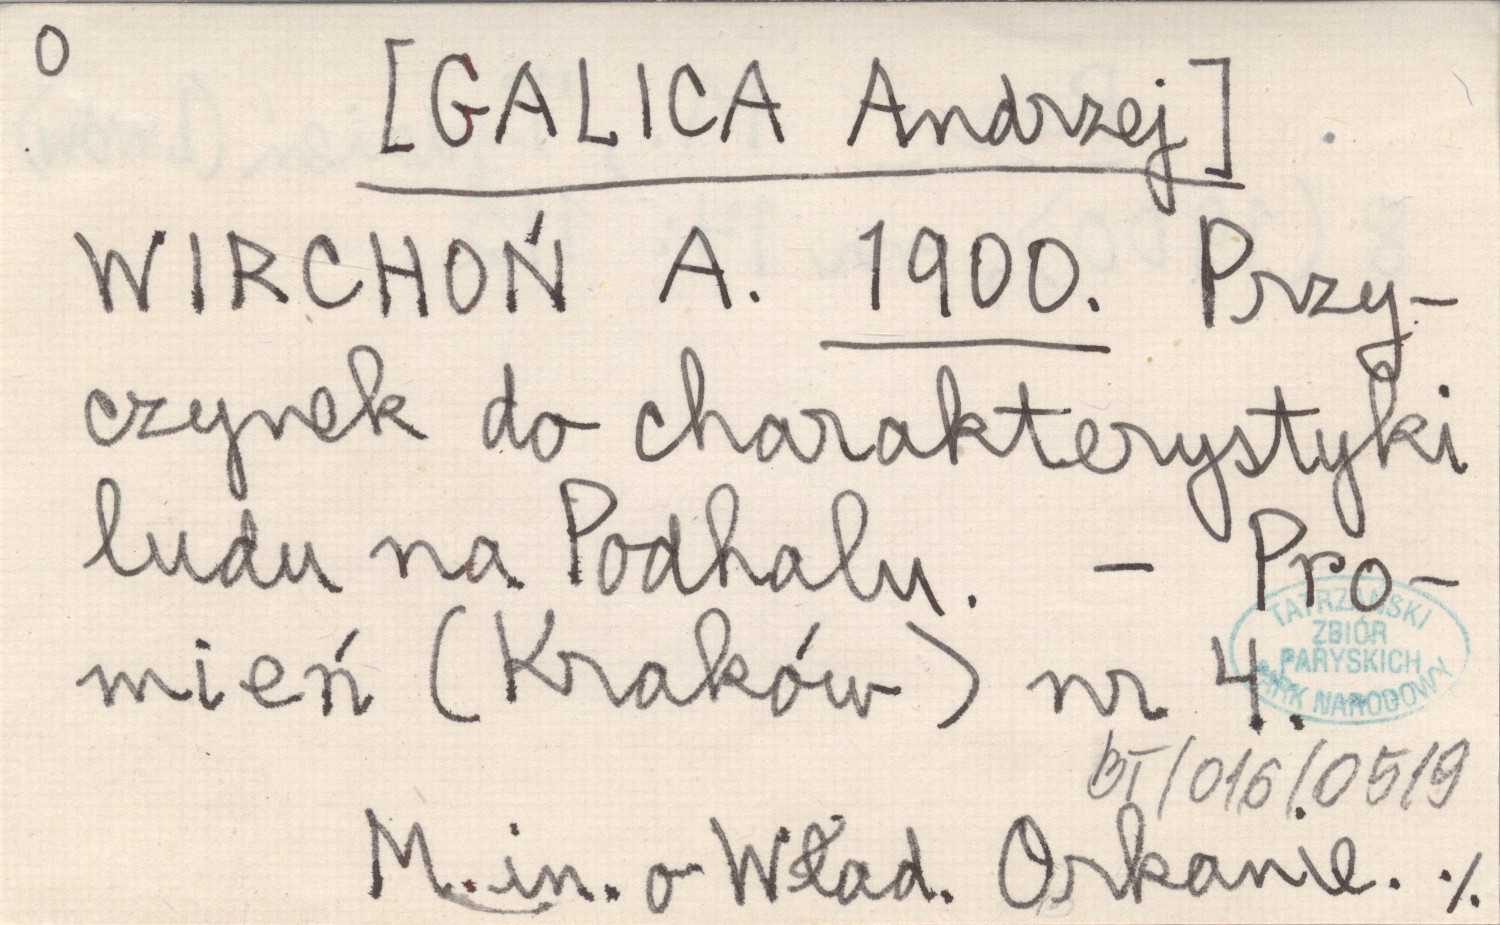 O
[GALICA Andrzej]
WIRCHOŃ A. 1900. Przy-
czynek do charakterystyki
ludu na Podhalu. - Pro-
mień (Kraków) nr 4.
TATRZAŃSKI
ZBIÓR
PARYSKICH
PARK NARODOWY
BT/016/0519
M.in. o Wład. Orkanie. ./.